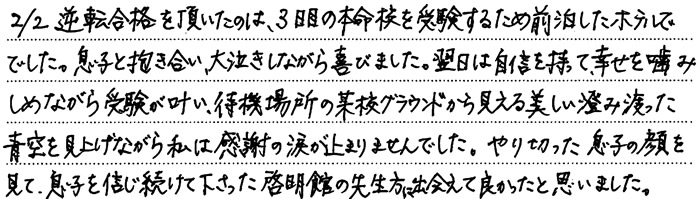 2/2 逆転合格を頂いたのは、3日目の本命校を受験するため前泊したホテルで
でした。息子と抱き合い、大泣きしながら喜びました。翌日は自信を持って、幸せを噛み
しめながら受験が叶い、待機場所の某校グラウンドから見える美しい澄み渡った
青空を見上げながら私は感謝の涙が止まりませんでした。やり切った息子の顔を
見て、息子を信じ続けて下さった啓明館の先生方に出会えて良かったと思いました。